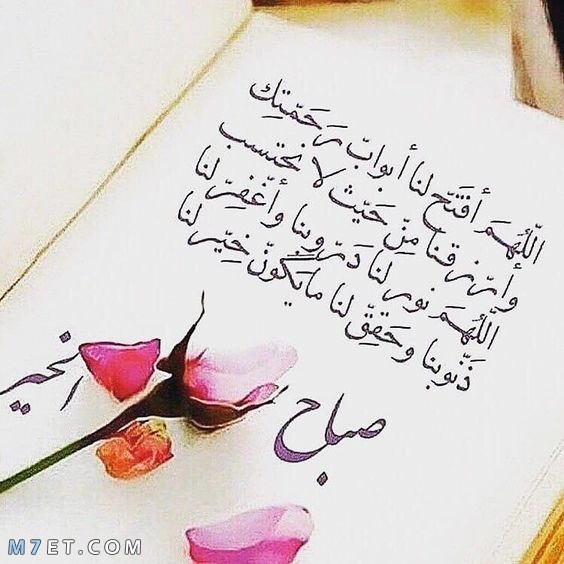 اللّهمَ أفتَح لنا أبواب رَحَمّتِك
وأرّزقنا مِنّ حَيّث لا نحتسب
اللّهمَ نور لنا دَرّوبنا وأغّفِرّ لنا
ذَنّوبنا وحَقِقّ لنا مايَكّونّ خِيّر لنا
صباح الخير
M7ET.COM